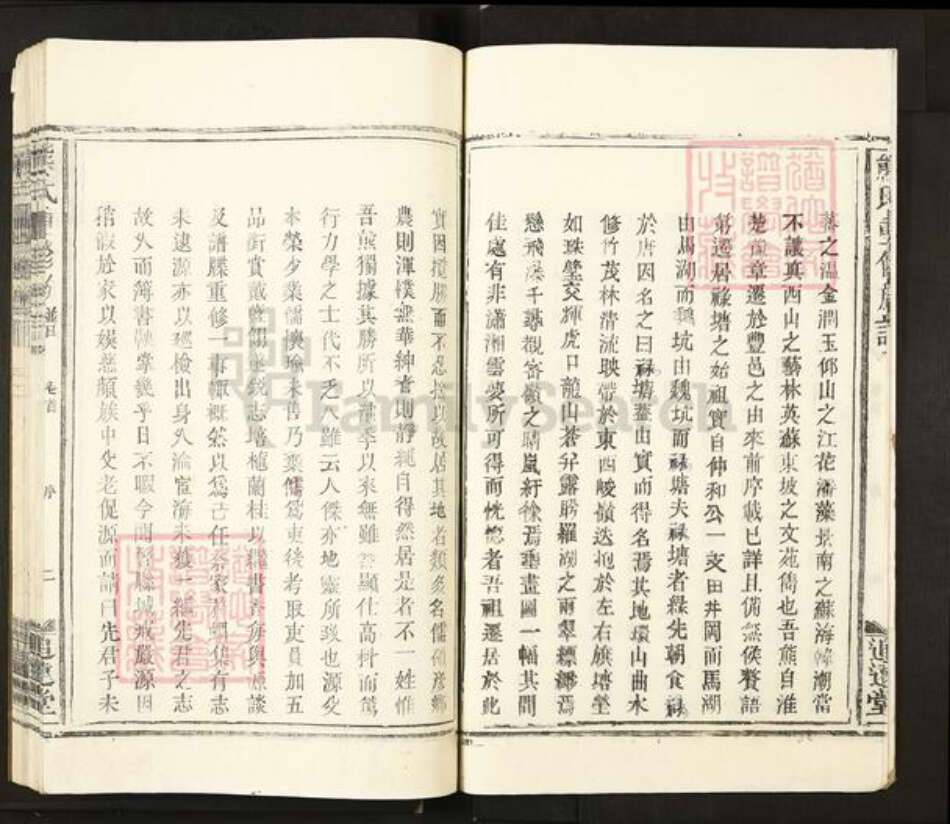 藻之溫金潤玉仰山之江花潘藻景南之蘇海韓潮當
不讓真西山之藝林英蘇東坡之文苑儁也吾熊自淮
楚豫章遷於豐邑之由來前序載已詳且備無俟贅語
第遷居祿塘之始祖實自仲和公一支由井岡而馬湖
由馬湖而魏坑由魏坑而祿塘夫祿塘者緣先朝食祿
於唐因名之曰祿塘蓋由實而得名焉其地環山曲水
修竹茂林清流映帶於東西峻嶺迭抱於左右旗塘瑩
如珠璧交輝虎口龍山蒼翠露勝羅湖之雨翠縹緲焉
懸飛瀑千尋觀富嶺之晴嵐紆徐焉垂畫圖一幅其間
佳處有非瀟湘雲夢所可得而恍惚者吾祖遷居於此
實因攬勝而不忍捨以故居其地者類多名儒碩彥鄉
農則渾樸無華紳耆則靜純自得然居是者不一姓惟
吾熊獨據其勝所以歷季以來無難顯仕高科而篤
行力學之士代不乏人雖云人傑亦地靈所致也源癸
本榮少業儒懊瑜未售乃棄儒為吏後考取吏員加五
品銜賞戴藍翎歷銳志培植蘭桂以繼書香舟與源談
及譜牒重修一事輒概然以為己任蔡家君鄒集有志
未逮源亦以巡檢出身久淪宦海未獲一繼先君之志
故久而薄書鞅掌幾乎日不暇今聞督縣城戒嚴源因
稍假於家以娛慈顏族中父老促源而請曰先君子未
熊氏
卷首
序
二
追遠堂
熊氏重修族譜
追遠堂
FamilySearch